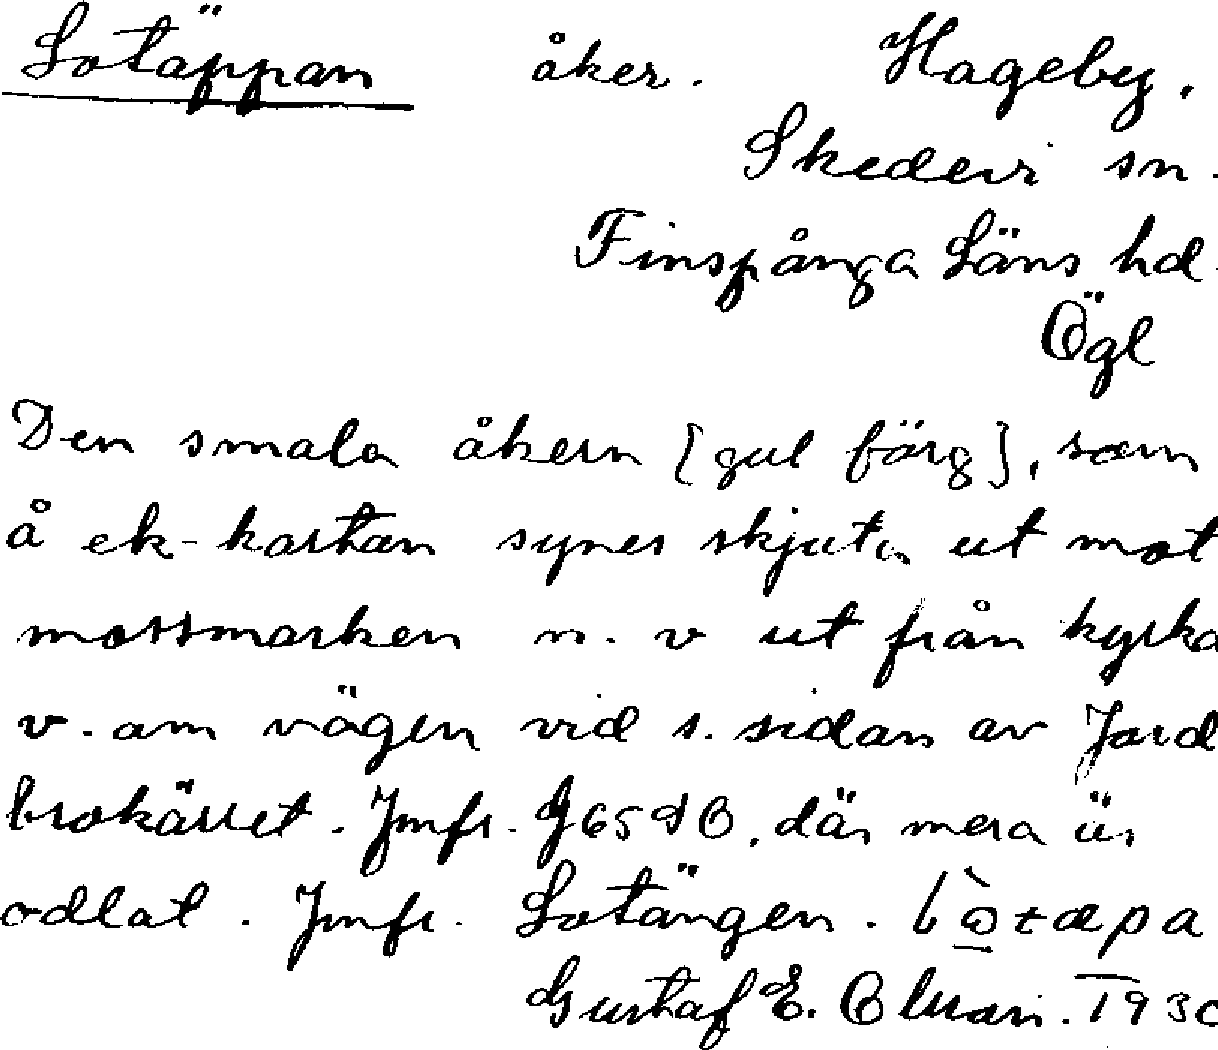 Sotäppan åker. Hageby.
Skedevi sn.
Finspånga Läns hd.
Ögl
Den smala åkern [gul färg], som
å ek-kartan synes skjuta ut mot
mossmarken n.v ut från kyrka
v. om vägen vid s. sidan av Jord
brokärret. Jmfr. J65 där mera är
odlat. Jmfr. Sotängen.
Gustaf E. 1930